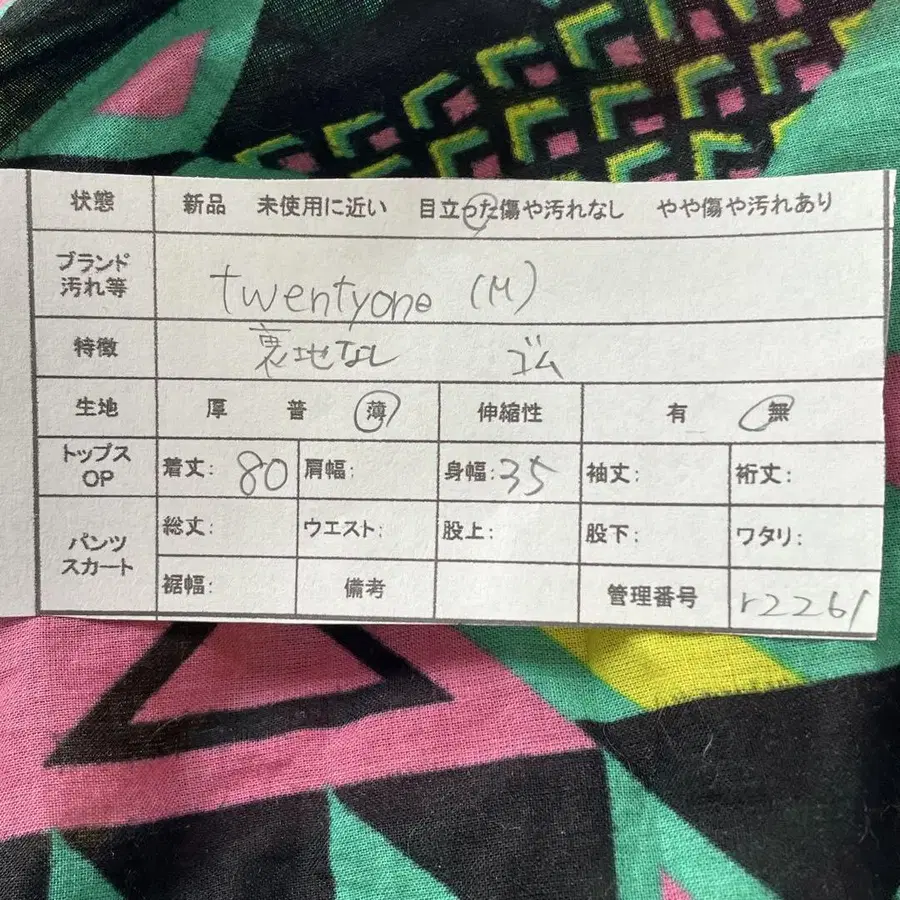 状態 新品 未使用に近い 目立った傷や汚れなし やや傷や汚れあり
ブランド
汚れ等 twentyone (M)
特徴 裏地なし ゴム
生地 厚 普 薄 伸縮性 有 無
トップス
OP 着丈: 80 肩幅: 身幅: 35 袖丈: 裄丈:
パンツ
スカート 総丈: ウエスト: 股上: 股下: ワタリ:
裾幅: 備考 管理番号 r2261